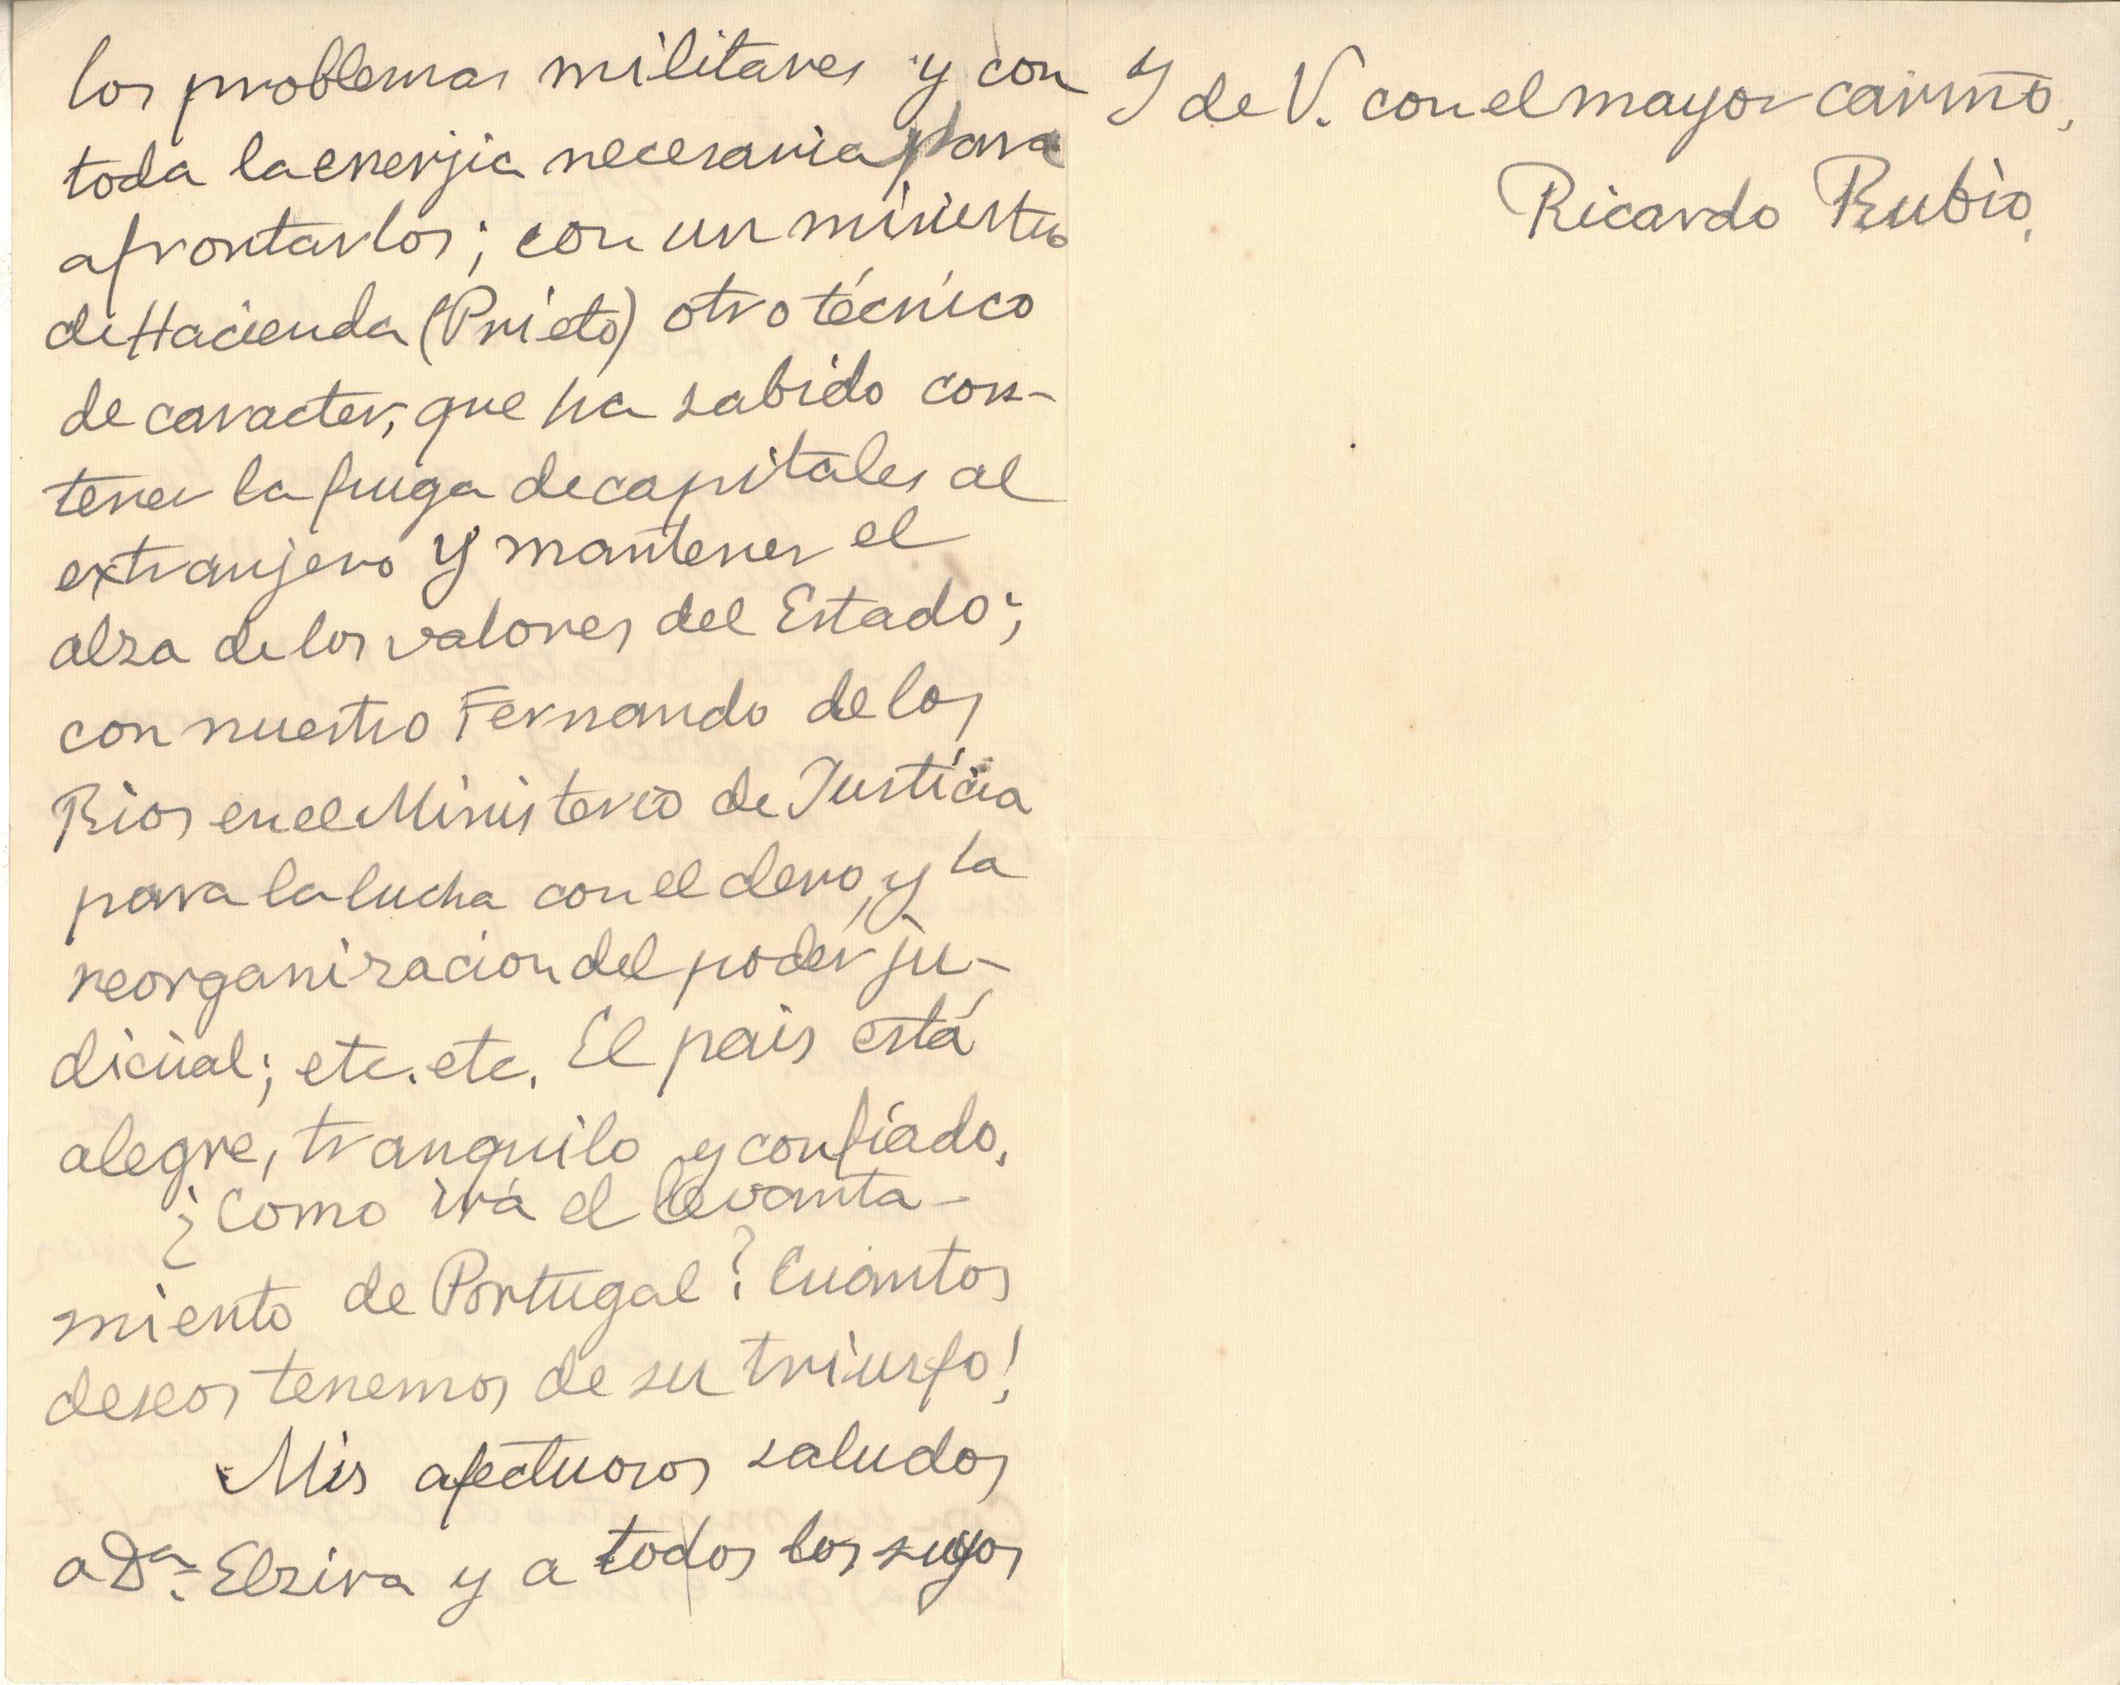 los problemas militares y con
toda la energia necesaria para
afrontarlos; con un ministro
de Hacienda (Prieto) otro técnico
de caracter, que ha sabido con-
tener la fuga de capitales al
extranjero y mantener el
alza de los valores del Estado;
con nuestro Fernando de los
Rios en el Ministerio de Justicia
para la lucha con el clero, y la
reorganizacion del poder ju-
dicial; etc. etc. El pais está
alegre, tranquilo y confiado.
¿Como irá el levanta-
miento de Portugal? Cuantos
deseos tenemos de su triunfo!
Mis afectuosos saludos
a Dª. Elzira y a todos los suyos
Y de V. con el mayor cariño,
Ricardo Rubio.